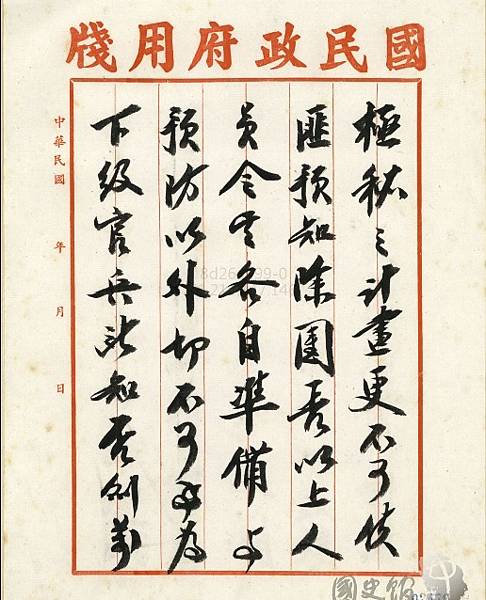 國民政府用牋
極秘之計畫更不可使
匪預知除團長以上人
員令其各自準備與
預防以外切不可為
下級官兵所知否則萬
中華民國 年 月 日
國史館